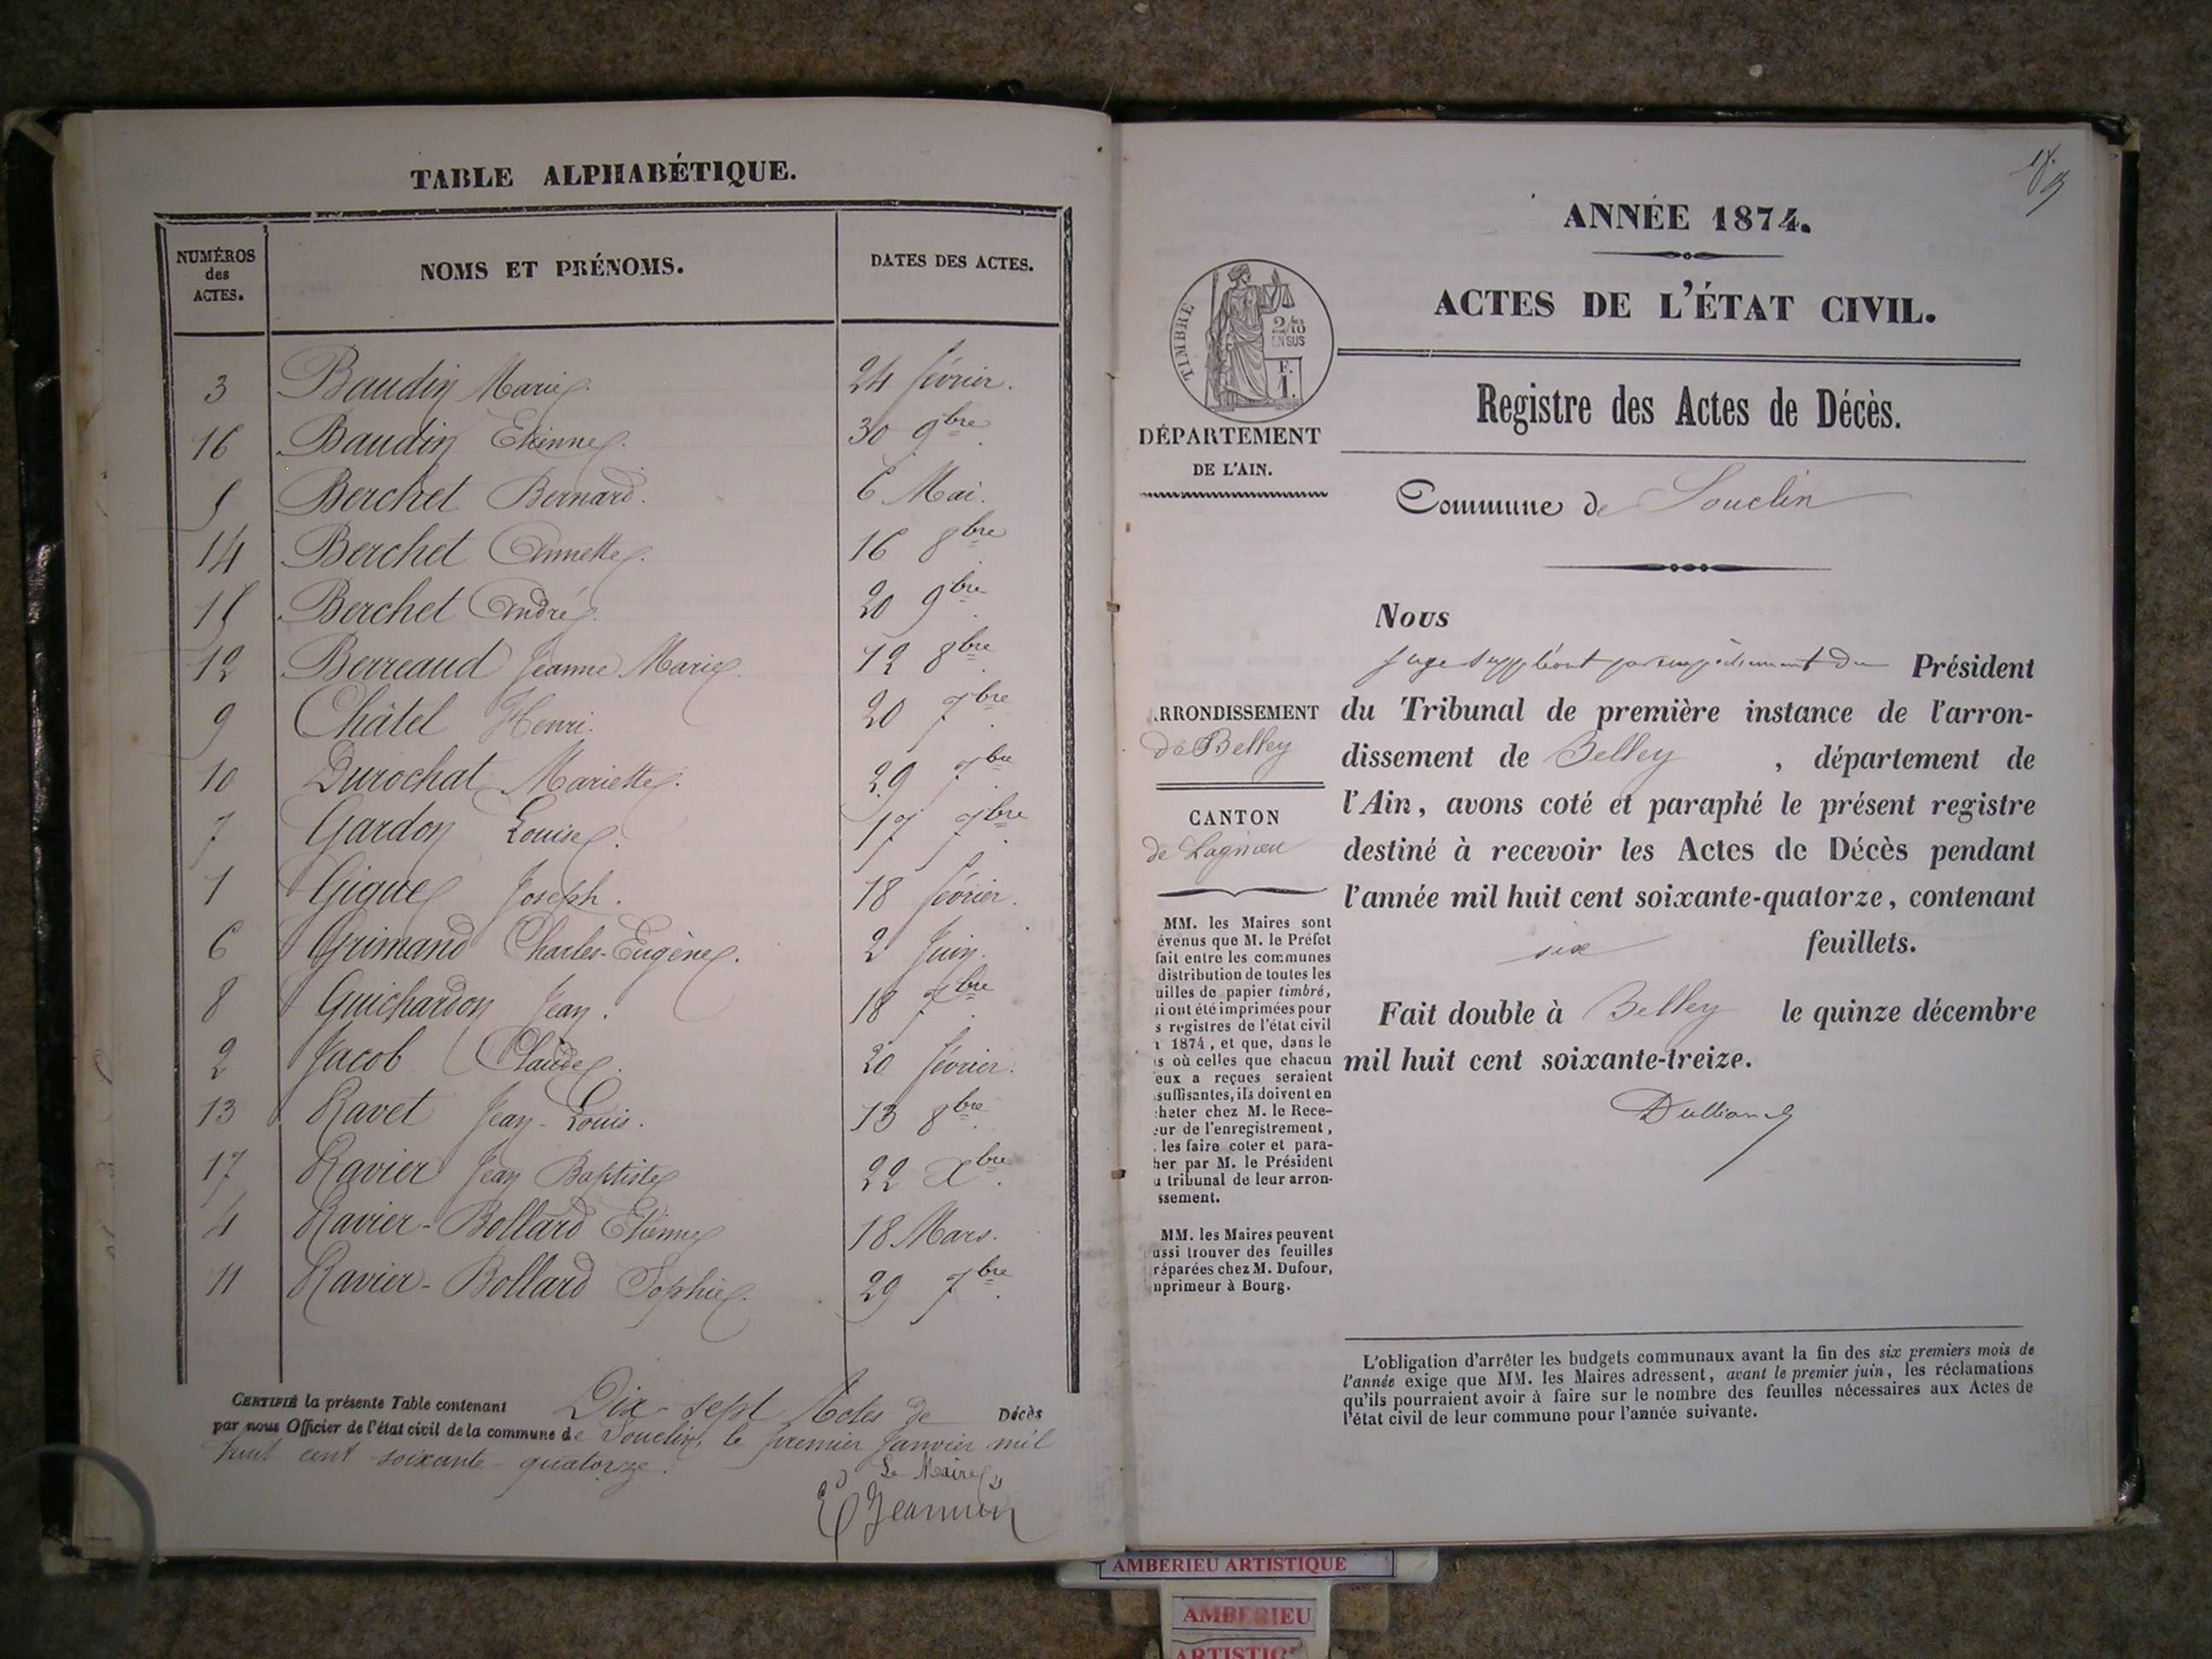 TABLE ALPHABÉTIQUE.
NUMÉROS des ACTES. NOMS ET PRÉNOMS. DATES DES ACTES.
3 Baudin Marie. 24 février.
16 Baudin Etienne. 30 9bre.
5 Berchet Bernard. 6 Mai.
14 Berchet Annette. 16 8bre.
15 Berchet André. 20 9bre.
12 Berreaud Jeanne Marie. 12 8bre.
9 Châtel Henri. 20 7bre.
10 Durochat Mariette. 29 7bre.
7 Gardon Louise. 17 7bre.
1 Gigue Joseph. 18 février.
6 Grimand Charles-Eugène. 2 Juin.
8 Guichardon Jean. 18 7bre.
2 Jacob Claude. 20 février.
13 Ravet Jean-Louis. 13 8bre.
17 Ravier Jean Baptiste 22 Xbre.
4 Ravier-Bollard Etienne 18 Mars.
11 Ravier-Bollard Sophie. 29 7bre.
CERTIFIÉ la présente Table contenant Dix sept Actes de Décès
par nous Officier de l'état civil de la commune de Souclin, le premier Janvier mil
huit cent soixante-quatorze.
Le Maire
Jeannin
ANNÉE 1874.
ACTES DE L'ÉTAT CIVIL.
TIMBRE
2/10
EN SUS
F.
1.
Registre des Actes de Décès.
DÉPARTEMENT
DE L'AIN.
Commune de Souclin
Nous
juge suppléant par empêchement du Président
du Tribunal de première instance de l'arron-
dissement de Belley, département de
l'Ain, avons coté et paraphé le présent registre
destiné à recevoir les Actes de Décès pendant
l'année mil huit cent soixante-quatorze, contenant
six feuillets.
Fait double à Belley le quinze décembre
mil huit cent soixante-treize.
RRONDISSEMENT
de Belley
CANTON
de Lagnieu
MM. les Maires sont
évenus que M. le Préfet
fait entre les communes
distribution de toutes les
uilles de papier timbré,
ui ont été imprimées pour
s registres de l'état civil
1874, et que, dans le
s où celles que chacun
eux a reçues seraient
suffisantes, ils doivent en
heter chez M. le Rece-
eur de l'enregistrement,
les faire coter et para-
her par M. le Président
u tribunal de leur arron-
ssement.
MM. les Maires peuvent
ussi trouver des feuilles
réparées chez M. Dufour,
nprimeur à Bourg.
L'obligation d'arrêter les budgets communaux avant la fin des six premiers mois de
l'année exige que MM. les Maires adressent, avant le premier juin, les réclamations
qu'ils pourraient avoir à faire sur le nombre des feuilles nécessaires aux Actes de
l'état civil de leur commune pour l'année suivante.
AMBERIEU ARTISTIQUE
AMBERIEU
ARTISTIQUE